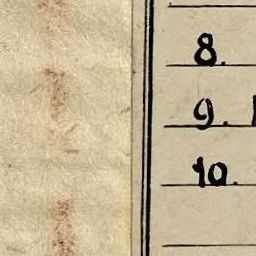 8.
9.
10.